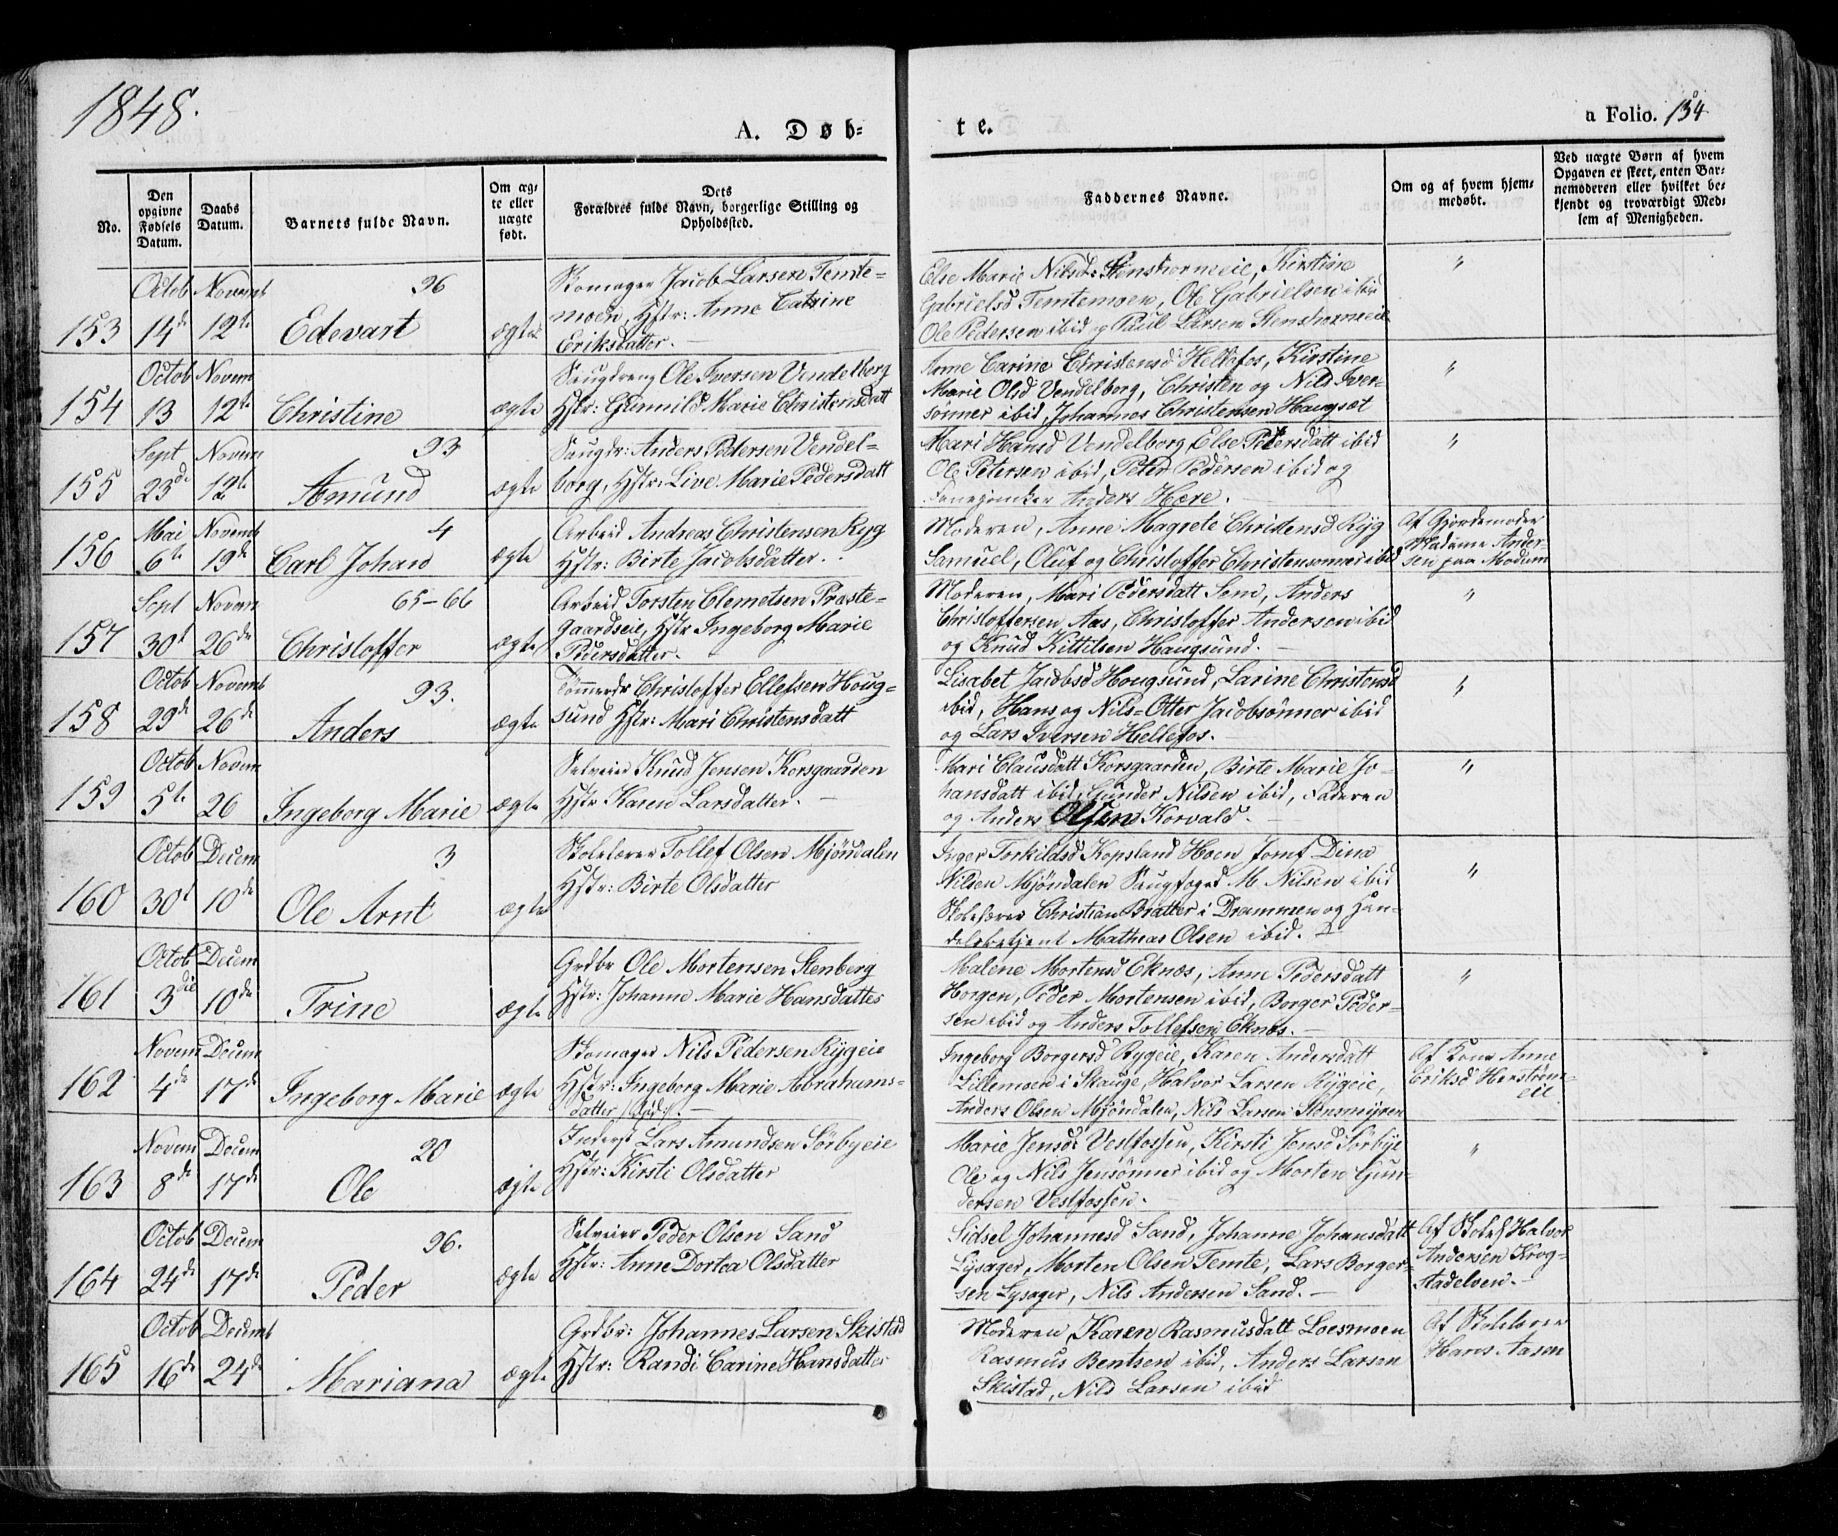 1848.
A. Døb-
te.
a Folio. 134
No.
Den opgivne Fødsels Datum.
Daabs Datum.
Barnets fulde Navn.
Om ægte eller uægte født.
Dets Forældres fulde Navn, borgerlige Stilling og Opholdssted.
Faddernes Navne.
Om og af hvem hjemmedøbt.
Ved uægte Børn af hvem Opgaven er skeet, enten Barnemoderen eller hvilket bekjendt og troværdigt Medlem af Menigheden.
153 Octob 14de Novemb 12te Edevart 96 ægte
Skomager Jacob Larsen Temte-
moen, Hstr: Anne Catrine
Eriksdatter.
Else Marie Nilsd: Stenshorneie, Kirstine
Gabrielsd Temtemoen, Ole Gabrielsen ibid
Ole Pedersen ibid og Paul Larsen Stenshorneie
"
154 Octob 13 Novem 12te Christine ægte
Saugdreng Ole Iversen Vendelborg
Hstr: Gunnild Marie Christensdatt
Anne Carine Christensd Hellefos, Kirstine
Marie Olsd Vendelborg, Christen og Nils Iver-
sønner ibid, Johannes Christensen Haugsæt
"
155 Sept 23de Novem 12te Amund 93 ægte
Saugdr: Anders Pedersen Vendel-
borg, Hstr: Live Marie Pedersdatt
Mari Hansd Vendelborg, Else Petersdatt ibid
Ole Petersen ibid, Peter Pedersen ibid og
Fanejunker Anders Hære.
"
156 Mai 6te Novemb 19de Carl Johan 4 ægte
Arbeid Andreas Christensen Ryg
Hstr: Birte Jacobsdatter.
Moderen, Anne Magrete Christensd Ryg
Samuel, Oluf og Christoffer Christensønner ibid
Af Gjordemoder
Madame Ander-
sen paa Modum
157 Sept 30te Novem 26de Christoffer 65-66 ægte
Arbeid Torsten Clemetsen Præste-
gaardseie, Hstr Ingeborg Marie
Pedersdatter.
Moderen, Mari Pedersdatt Sem, Anders
Christoffersen Aas, Christoffer Andersen ibid
og Knud Kittilsen Haugsund.
"
158 Octob 29de Novemb 26de Anders 93. ægte
Tømmerdr Christoffer Ellefsen Houg-
sund Hstr: Mari Christensdatt
Lisabet Jacobsd Hougsund, Larine Christensd
ibid, Hans og Nils-Otter Jacobsønner ibid
og Lars Iversen Hellefos.
"
159 Octob 5te Novem 26 Ingeborg Marie ægte
Selveier Knud Jensen Korsgaarden
Hstr Karen Larsdatter.
Mari Clausdatt Korsgaarden, Birte Marie Jo-
hansdatt ibid, Gunder Nilsen ibid, Faderen
og Anders Olsen Korvald.
"
160 Octob 30te Decem 10de Ole Arnt 3 ægte
Skolelærer Tollef Olsen Mjøndalen
Hstr: Birte Olsdatter
Inger Torkildsd Kopsland Hoen Jomf Dina
Nilsen Mjøndalen Saugfoged M. Nilsen ibid
Skolelærer Christian Bratter i Drammen og Han-
delsbetjent Mathias Olsen ibid.
"
161 Octob 3die Decem 10de Trine ægte
Grdbr Ole Mortensen Stenberg
Hstr: Johanne Marie Hansdatter
Malene Mortensd Eknæs, Anne Pedersdatt
Horgen, Peder Mortensen ibid, Borger Peder-
sen ibid og Anders Tollefsen Eknæs.
"
162 Novem 4de Decem 17de Ingeborg Marie ægte
Skomager Nils Pedersen Rygeie
Hstr: Ingeborg Marie Abrahams-
datter /:død:/.
Ingeborg Borgersd Rygeie, Karen Andersdatt
Lillemoen i Skauge, Halvor Larsen Rygeie,
Anders Olsen Mjøndalen, Nils Larsen Stensmyren
Af Kone Anne
Eriksd
eie
163 Novem 8de Decem 17de Ole 20 ægte
Inderst Lars Amundsen Sørbyeie
Hstr: Kirsti Olsdatter
Marie Jensd: Vestfossen, Kirsti Jensd Sørbye
Ole og Nils Jensønner ibid og Morten Gun-
dersen Vestfossen.
"
164 Octob 24de Decem 17de Peder 96. ægte
Selveier Peder Olsen Sand
Hstr: Anne Dortea Olsdatter
Sidsel Johannesd Sand, Johanne Johansdatt
Lysager, Morten Olsen Temte, Lars Borger-
sen Lysager, Nils Andersen Sand.
Af Skolel Halvor
Andersen Krog-
stadelven.
165 Octob 16de Decemb 24de Mariana ægte
Grdbr: Johannes Larsen Skistad
Hstr: Randi Carine Hansdatter
Moderen, Karen Rasmusdatt Loesmoen
Rasmus Bentsen ibid, Anders Larsen
Skistad, Nils Larsen ibid
Af Skolelærer
Hans Aasen